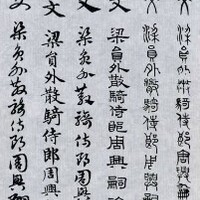 文 梁員外散騎侍郎周興
文 梁員外散騎侍郎周興
文 梁員外散騎侍郎周興嗣
文 梁員外散騎侍郎周興
文 梁員外散騎侍郎周興
文 梁員外散騎侍郎周興嗣